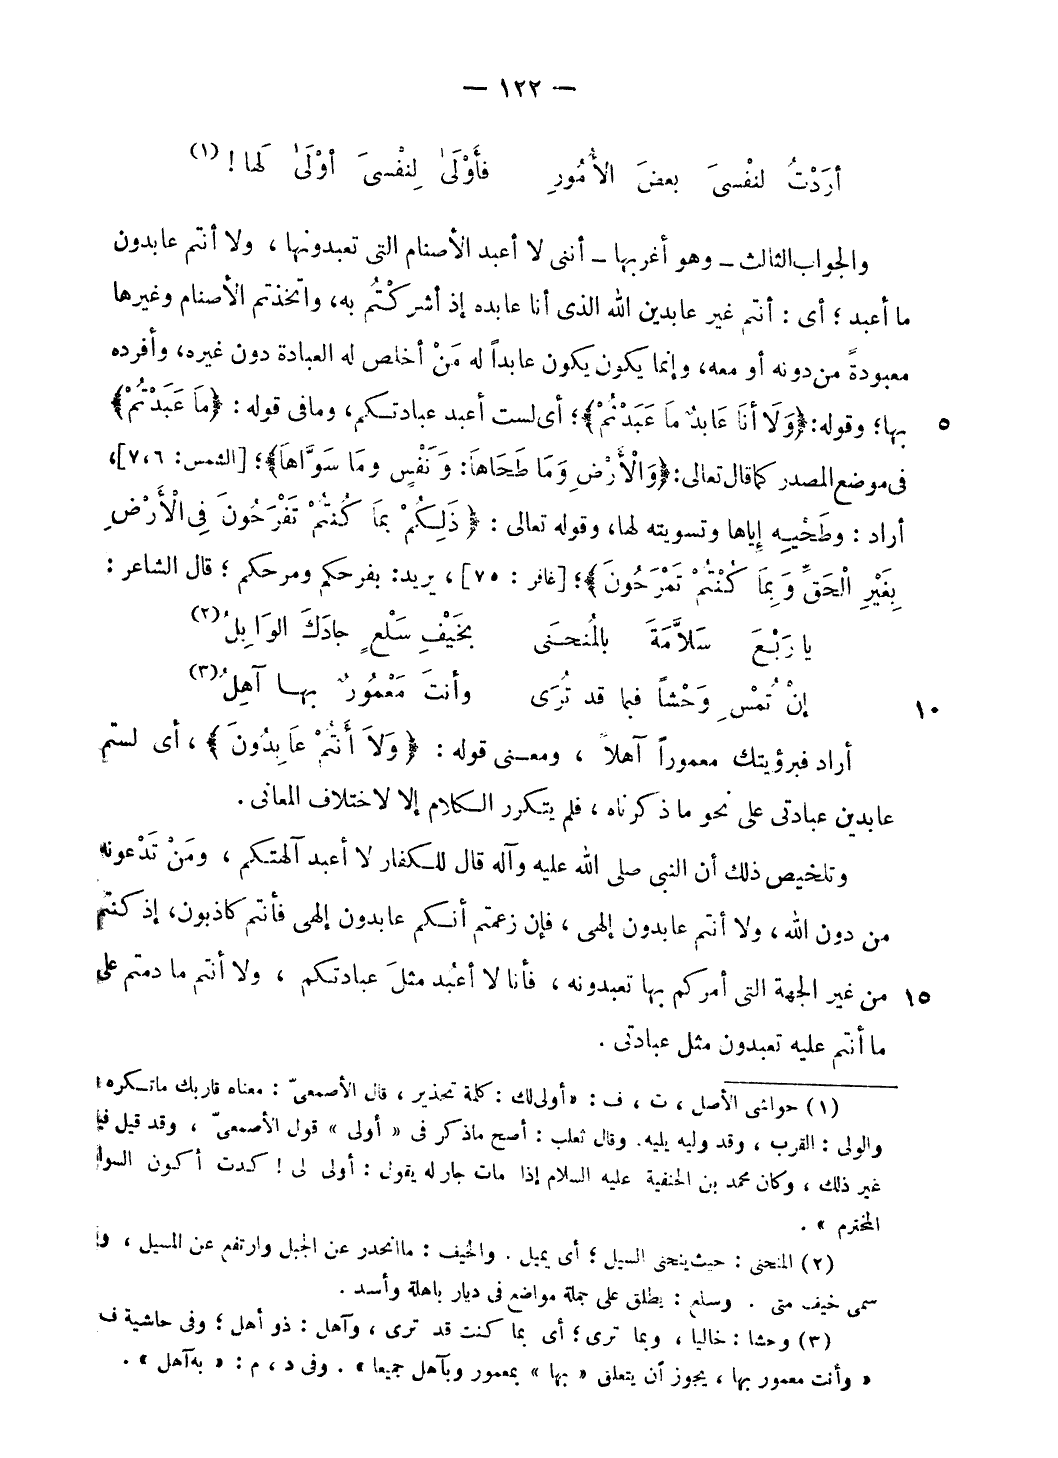 — ١٢٢ —
أرَدْتُ لنفْسىَ بعضَ الأُمُورِ فأَوْلَىٰ لِنفْسىَ أوْلَىٰ لَها ! (١)
والجواب الثالث ــ وهو أغربها ــ أننى لا أعبد الأصنام التى تعبدونها ، ولا أنتم عابدون
ما أعبد ؛ أى : أنتم غير عابدين الله الذى أنا عابده إذ أشركْتُم به، واتخذتم الأصنام وغيرها
معبودةً من دونه أو معه، وإنما يكون يكون عابداً له مَنْ أخلص له العبادة دون غيره، وأفرده
بها؛ وقوله: ﴿وَلَا أنَا عَابِدٌ مَا عَبَدْتُمْ﴾؛ أى لست أعبد عبادتكم، وما فى قوله : ﴿مَا عَبَدْتُمْ﴾ ٥
فى موضع المصدر كما قال تعالى: ﴿وَالْأَرْضِ وَمَا طَحَاهَا: وَنَفْسٍ وَمَا سَوَّاهَا﴾؛ [الشمس: ٧،٦]،
أراد : وطَحْيِه إياها وتسويته لها، وقوله تعالى : ﴿ ذَلِكُمْ بِمَا كُنْتُمْ تَفْرَحُونَ فِى الْأَرْضِ
بِغَيْرِ الْحَقِّ وَبِمَا كُنْتُمْ تَمْرَحُونَ﴾؛ [غافر : ٧٥] ، يريد: بفرحكم ومرحكم ؛ قال الشاعر :
يا رَبْعَ سَلاَّمَةَ بالمُنحنَى بخَيْفِ سَلْعٍ جادَكَ الوَابِلُ(٢)
إنْ تُمْسِ وَحْشاً فبما قد تُرَى وأنتَ مَعْمُورٌ بها آهِلُ(٣) ١٠
أراد فبرؤيتك معموراً آهلاً ، ومعنى قوله : ﴿ وَلاَ أَنْتُمْ عَابِدُونَ ﴾ ، أى لستم
عابدين عبادتى على نحو ما ذكرناه ، فلم يتكرر الكلام إلا لاختلاف المعانى .
وتلخيص ذلك أن النبى صلى الله عليه وآله قال للكفار لا أعبد آلهتكم ، ومَنْ تَدْعونه
من دون الله ، ولا أنتم عابدون إلهى ، فإن زعمتم أنكم عابدون إلهى فأنتم كاذبون، إذ كنتم
من غير الجهة التى أمركم بها تعبدونه ، فأنا لا أعبُد مثلَ عبادتكم ، ولا أنتم ما دمتم على ١٥
ما أنتم عليه تعبدون مثل عبادتى .
(١) حواشى الأصل ، ت ، ف : « أولى لك : كلمة تحذير ، قال الأصمعىّ : معناه قاربك ما تكره ؛
والولى : القرب ، وقد وليه يليه. وقال ثعلب : أصح ما ذكر فى « أولى » قول الأصمعىّ ، وقد قيل فيه
غير ذلك ، وكان محمد بن الحنفية عليه السلام إذا مات جار له يقول : أولى لى ! كدت أكون السواد
المخترم » .
(٢) المنحنى : حيث ينحنى السيل ؛ أى يميل . والخيف : ما انحدر عن الجبل وارتفع عن المسيل ،
سمى خيف منى . وسلع : يطلق على جملة مواضع فى ديار باهلة وأسد .
(٣) وحشا : خاليا ، وبما ترى ؛ أى بما كنت قد ترى ، وآهل : ذو أهل ؛ وفى حاشية ف
« وأنت معمور بها ، يجوز أن يتعلق « بها » بمعمور وبآهل جميعا » . وفى د ، م : « به آهل » .